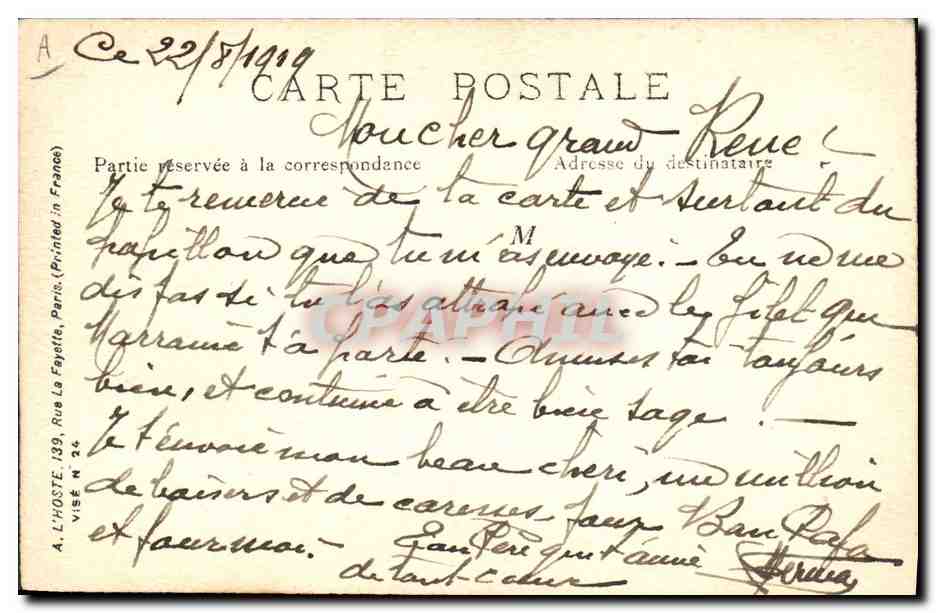 A
Ce 22/8/1919
CARTE POSTALE
Mon cher grand René!
Partie réservée à la correspondance
Adresse du destinataire
Je te remercie de la carte et surtout du
M
papillon que tu m'as envoyé. - Tu ne me
dis pas si tu l'as attrapé avec le filet que
CPAPHIL
Marraine t'a porté. - Amuses toi toujours
bien, et continue à être bien sage. -
Je t'envoie mon beau chéri, un million
de baisers et de caresses pour Bon Papa
et pour moi. - Ton Père qui t'aime
de tout coeur
A. L'HOSTE, 139, Rue La Fayette, Paris. (Printed in France)
VISÉ N° 24